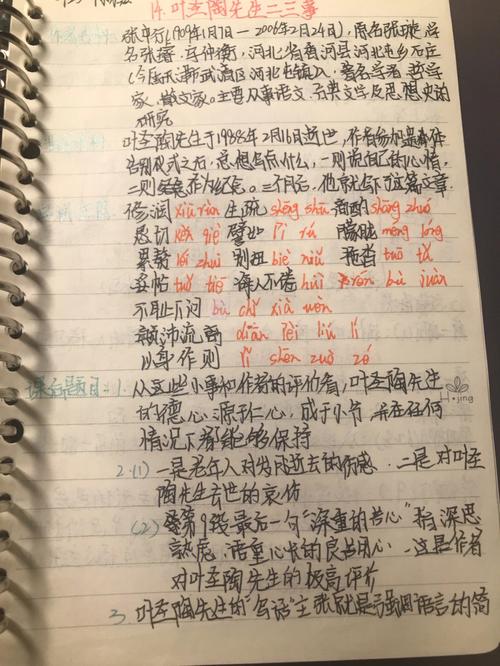 14.叶圣陶先生二三事
张中行(1909年1月7日—2006年2月24日),原名张璇,学
名张璿,字仲衡,河北省香河县河北屯乡石庄
(今属天津武清区河北屯镇)人,著名学者、哲学
家、散文家。主要从事语文、古典文学及思想史的
研究
叶圣陶先生于1988年2月16日逝世,作者参加遗体
告别仪式之后,总想写点什么,一则说自己的心情,
二则作为纪念。三个月后,他就写下了这篇文章.
修润 xiū rùn 生疏 shēng shū 商酌 shāng zhuó
恳切 kěn qiè 譬如 pì rú 朦胧 méng lóng
累赘 léi zhui 别扭 biè niǔ 拖沓 tuō tà
妥帖 tuǒ tiē 诲人不倦 huì rén bù juàn
不耻下问 bù chǐ xià wèn
颠沛流离 diān pèi liú lí
以身作则 yǐ shēn zuò zé
课后题目:1. 从这些小事和作者的评价看,叶圣陶先生
的德心源于仁心,成于小节,并在任何
情况下都能够保持
2.(1) 一是老年人对岁月逝去的伤感 二是对叶圣
陶先生去世的哀伤
(2) 第9段最后一句"深重的苦心"指深思
熟虑,语重心长的良苦用心 这是作者
对叶圣陶先生的极高评价
3. 叶圣陶先生的"写话"主张就是强调语言的简
H·jing